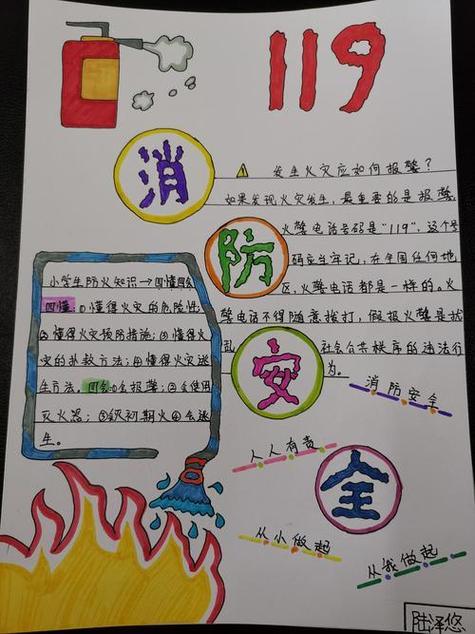 119
消
防
安
全
发生火灾应如何报警?
如果发现火灾发生,最重要的是报警,
火警电话号码是"119",这个号
码应当牢记,在全国任何地
区,火警电话都是一样的。火
警电话不得随意拨打,假报火警是扰
乱社会公共秩序的违法行
为。
小学生防火知识→四懂四会
四懂:①懂得火灾的危险性
②懂得火灾预防措施;③懂得火
灾的扑救方法;④懂得火灾逃
生方法。四会①会报警;②会使用
灭火器;③救初期火④会逃
生。
消防安全
人人有责
从小做起
从我做起
陆泽悠